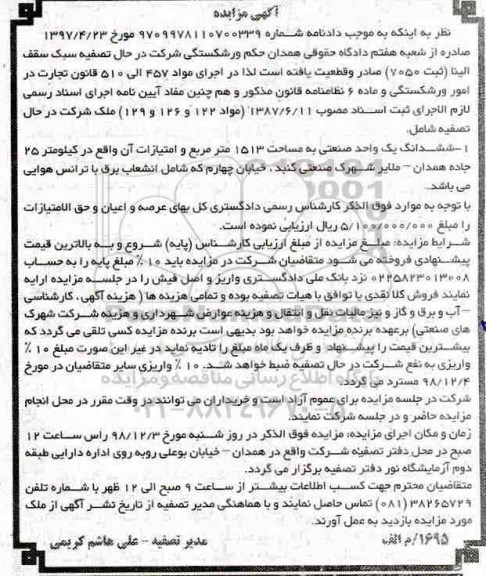 آگهی مزایده
نظر به اینکه به موجب دادنامه شماره ۹۷۰۹۹۷۸۱۱۰۷۰۰۳۳۹ مورخ ۱۳۹۷/۴/۲۳
صادره از شعبه هفتم دادگاه حقوقی همدان حکم ورشکستگی شرکت در حال تصفیه سبک سقف
الینا (ثبت ۷۰۵۰) صادر وقطعیت یافته است لذا در اجرای مواد ۴۵۷ الی ۵۱۰ قانون تجارت در
امور ورشکستگی و ماده ۶ نظامنامه قانون مذکور و هم چنین مفاد آیین نامه اجرای اسناد رسمی
لازم الاجرای ثبت اسناد مصوب ۱۳۸۷/۶/۱۱ (مواد ۱۲۲ و ۱۲۶ و ۱۲۹) ملک شرکت در حال
تصفیه شامل.
۱-ششدانگ یک واحد صنعتی به مساحت ۱۵۱۳ متر مربع و امتیازات آن واقع در کیلومتر ۲۵
جاده همدان – ملایر شهرک صنعتی گنبد ، خیابان چهارم که شامل انشعاب برق با ترانس هوایی
می باشد.
با توجه به موارد فوق الذکر کارشناس رسمی دادگستری کل بهای عرصه و اعیان و حق الامتیازات
را مبلغ ۵/۱۰۰/۰۰۰/۰۰۰ ریال ارزیابی نموده است.
شرایط مزایده: مبلغ مزایده از مبلغ ارزیابی کارشناس (پایه) شروع و به بالاترین قیمت
پیشنهادی فروخته می شود متقاضیان شرکت در مزایده باید ۱۰ ٪ مبلغ پایه را به حساب
۰۲۲۵۸۲۳۰۱۳۰۰۸ نزد بانک ملی دادگستری واریز و اصل فیش را در جلسه مزایده ارایه
نمایند فروش کلا نقدی یا توافق با هیات تصفیه بوده و تمامی هزینه ها ( هزینه آگهی ، کارشناسی
– آب و برق و گاز و نیز مالیات نقل و انتقال و هزینه عوارض شهرداری و هزینه شرکت شهرک
های صنعتی) برعهده برنده مزایده خواهد بود بدیهی است برنده مزایده کسی تلقی می گردد که
بیشترین قیمت را پیشنهاد و ظرف یک ماه مبلغ را تادیه نماید در غیر این صورت مبلغ ۱۰ ٪
واریزی به نفع شرکت در حال تصفیه ضبط خواهد شد. ۱۰ ٪ واریزی سایر متقاضیان در مورخ
۹۸/۱۲/۴ مسترد می گردد.
شرکت در جلسه مزایده برای عموم آزاد است و خریداران می توانند در وقت مقرر در محل انجام
مزایده حاضر و در جلسه شرکت نمایند.
زمان و مکان اجرای مزایده: مزایده فوق الذکر در روز شنبه مورخ ۹۸/۱۲/۳ راس ساعت ۱۲
صبح در محل دفتر تصفیه شرکت واقع در همدان – خیابان بوعلی روبه روی اداره دارایی طبقه
دوم آزمایشگاه نور دفتر تصفیه برگزار می گردد.
متقاضیان محترم جهت کسب اطلاعات بیشتر از ساعت ۹ صبح الی ۱۲ ظهر با شماره تلفن
۳۸۲۶۵۷۲۹ (۰۸۱) تماس حاصل نمایند و با هماهنگی مدیر تصفیه از تاریخ نشر آگهی از ملک
مورد مزایده بازدید به عمل آورند.
۱۶۹۵/م الف مدیر تصفیه – علی هاشم کریمی